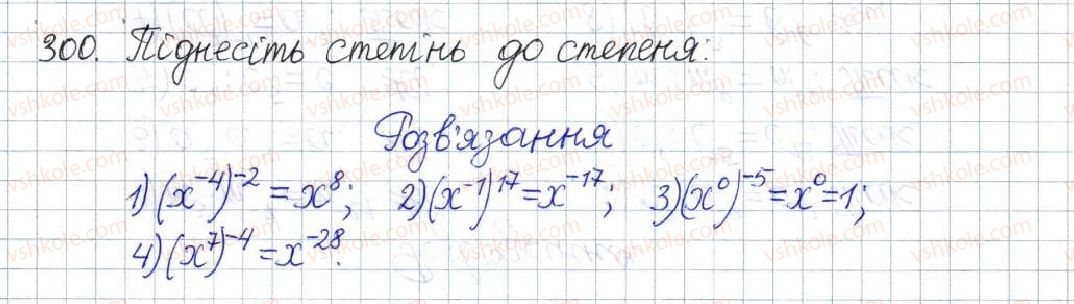 300. Піднесіть степінь до степеня:
Розв'язання
1) (x⁻⁴)⁻² = x⁸; 2) (x⁻¹)¹⁷ = x⁻¹⁷; 3) (x⁰)⁻⁵ = x⁰ = 1;
4) (x⁷)⁻⁴ = x⁻²⁸.